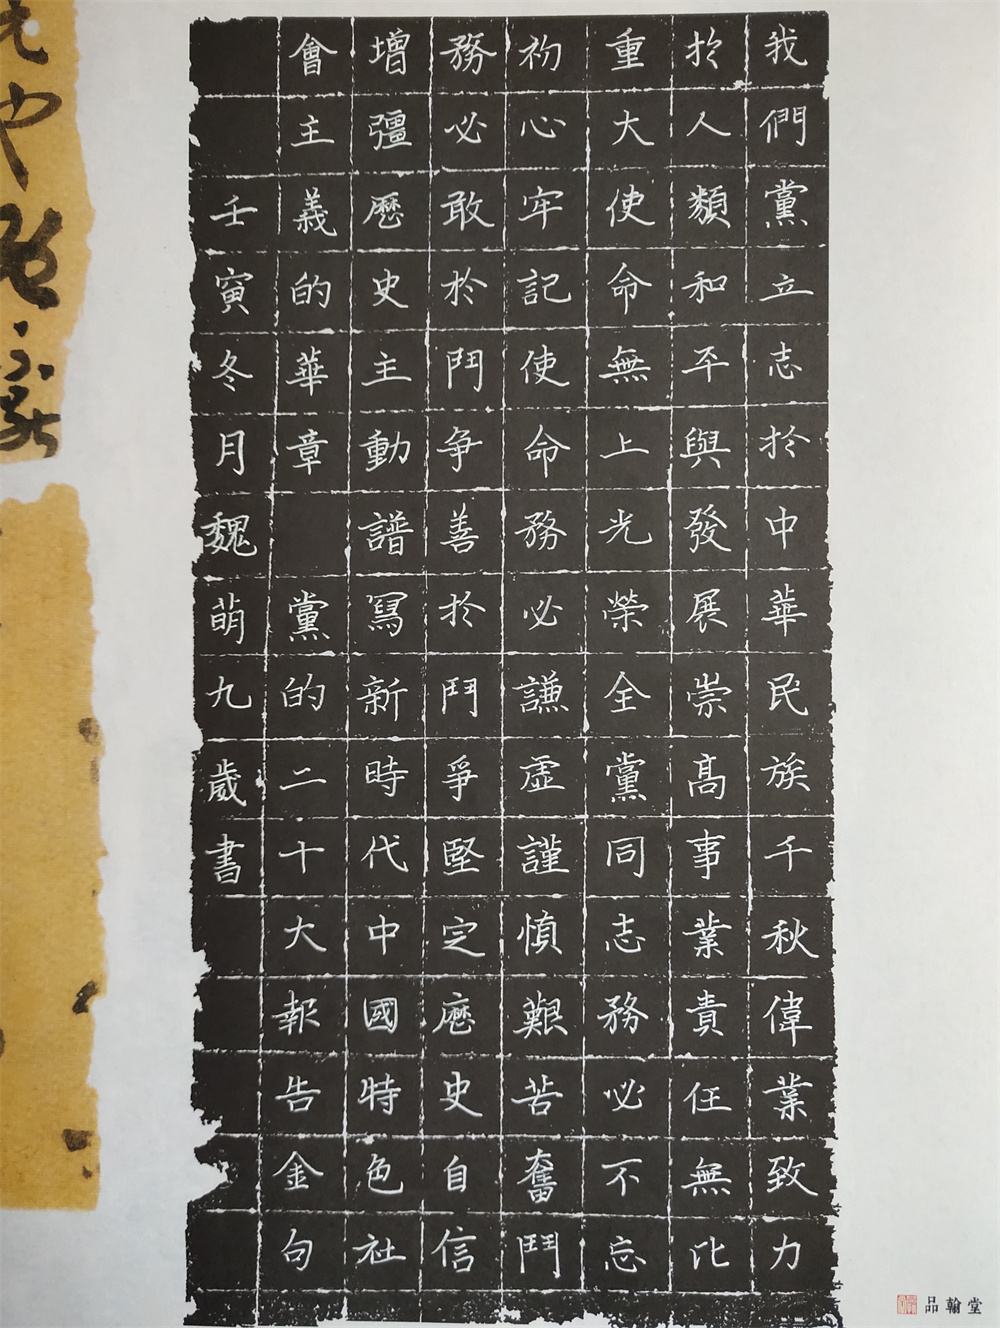 我們黨立志於中華民族千秋偉業致力
於人類和平與發展崇高事業責任無比
重大使命無上光榮全黨同志務必不忘
初心牢記使命務必謙虛謹慎艱苦奮鬥
務必敢於鬥争善於鬥爭堅定歷史自信
增彊歷史主動譜寫新時代中國特色社
會主義的華章 黨的二十大報告金句
壬寅冬月魏萌九歲書
品翰堂